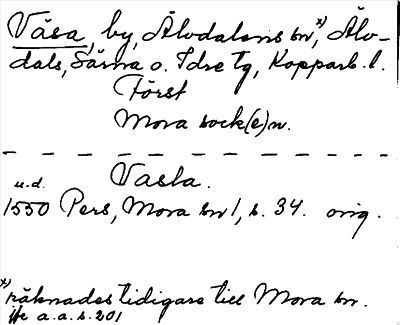 Våsa, by, Älvdalens sn,x) Älv-
dals, Särna o. Idre tg, Kopparb. l.
Först
Mora sock(e)n.
Vasla.
u.d.
1550 Pers, Mora sn 1, s. 34. orig.
x) räknades tidigare till Mora sn.
jfr a.a. s. 201